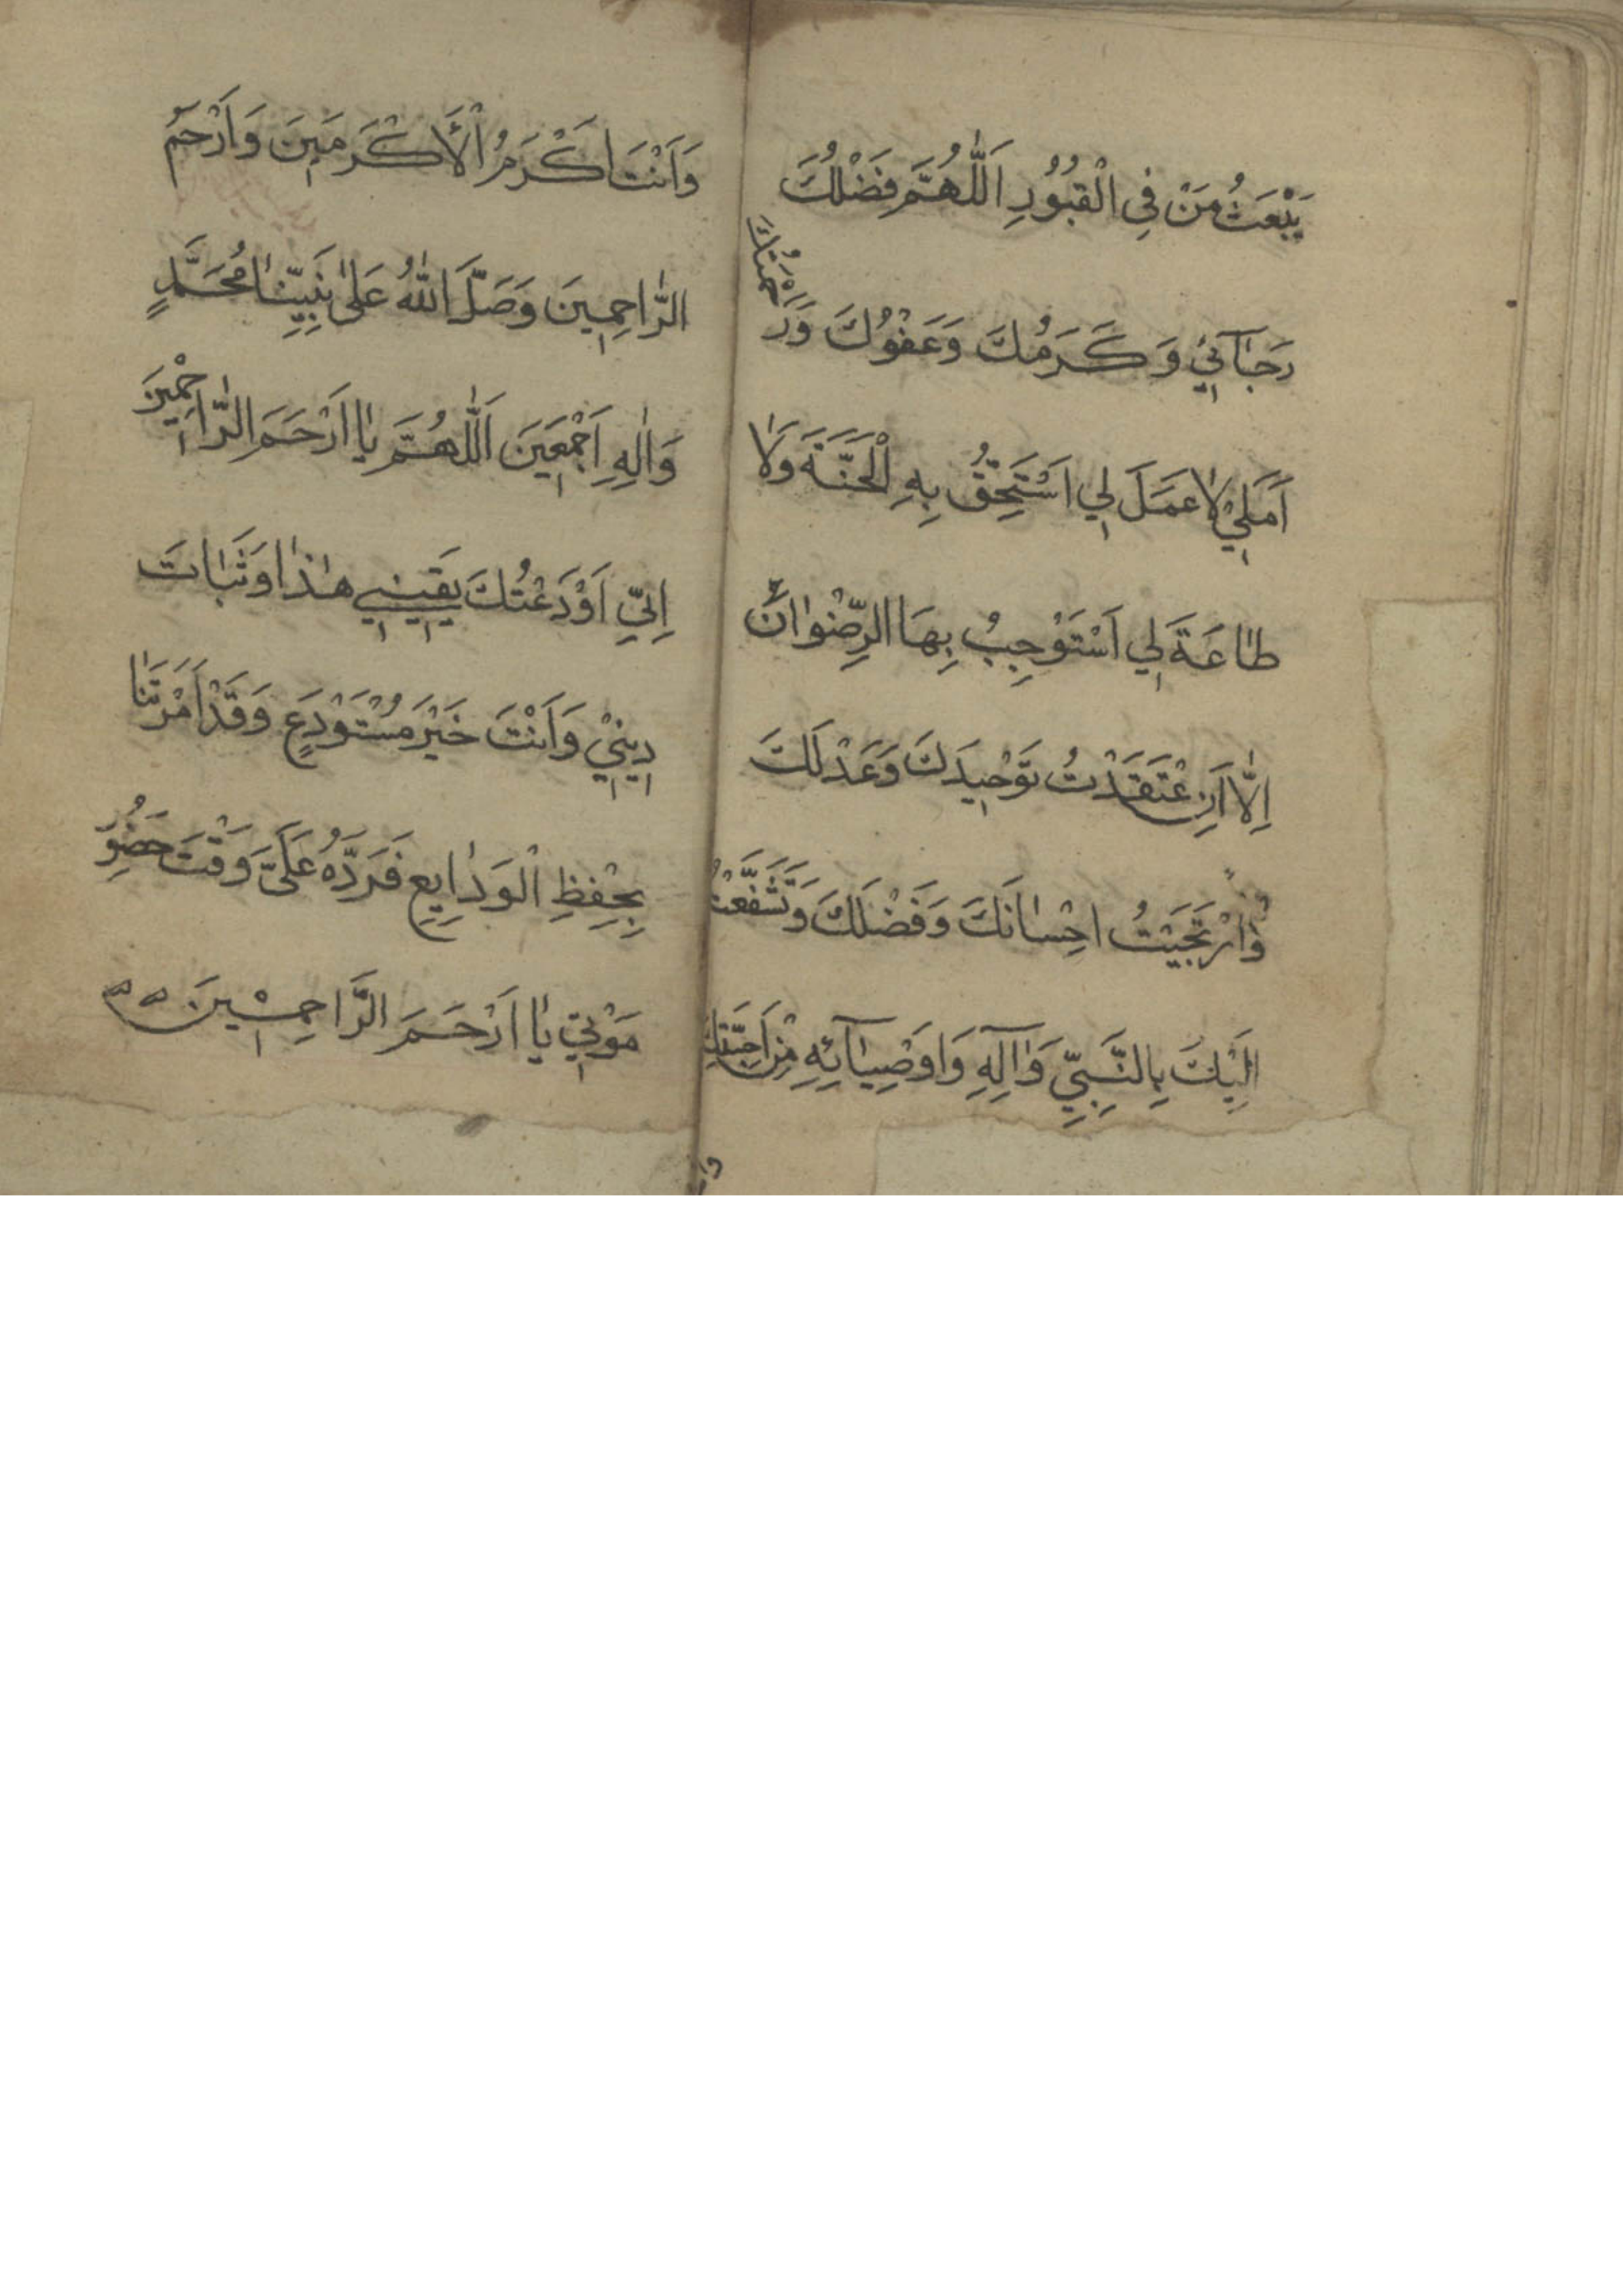 يَبْعَثُ مَنْ فِي الْقُبُوُرِ اَللّٰهُمَّ فَضْلُكَ
رَجٰٓائيٖ وَكَرَمُكَ وَعَفْوُكَ وَرَحْمَتُكَ
اَمَليٖ لٰا عَمَلَ لي اَسْتَحِقُّ بِهِ الْجَنَّةَ وَلٰا
طٰاعَةَ لي اَسْتَوْجِبُ بِهَا الرِّضْوٰانَ
اِلّٰا اَنِ عْتَقَدْتُ تَوْحيدَكَ وَعَدْلَكَ
وَارْتَجَيْتُ احْسٰانَكَ وَفَضْلَكَ وَتَشَفَّعْتُ
اِلَيْكَ بِالنَّبِيِّ وَآلِهِ وَاَوْصِيٰآئِهِ مِنْ اَحِبَّتِكَ
وَاَنْتَ اَكْرَمُ الْاَكْرَمينَ وَاَرْحَمُ
الرّٰاحِمينَ وَصَلَّ اللّٰهُ عَلىٰ نَبِيِّنٰا مُحَمَّدٍ
وَاٰلِهِ اَجْمَعينَ اَللّٰهُمَّ يٰا اَرْحَمَ الرّٰاحِمْينَ
اِنّيِ اَوْدَعْتُكَ يَقيني هٰذٰا وَثَبٰاتَ
دينيْ وَاَنْتَ خَيْرَ مُسْتَوْدَعٍ وَقَدْ اَمَرْتَنٰا
بِحِفْظِ الْوَدٰايِعِ فَرَدَّهُ عَلَيَّ وَقْتَ حَضُوِ
مَوْتي يٰا اَرْحَمَ الرَّاحِمْينَ